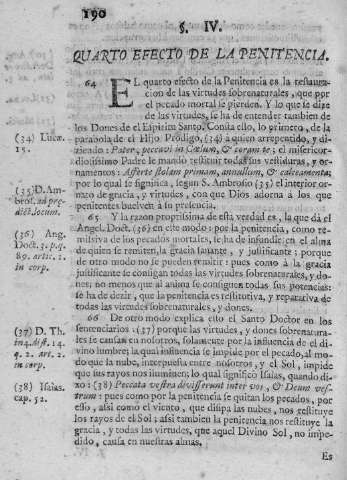 190
§. IV.
QUARTO EFECTO DE LA PENITENCIA.
64 EL quarto efecto de la Penitencia es la restaura-
cion de las virtudes sobrenaturales, que por
el pecado mortal se pierden. Y lo que se dize
de las virtudes, se ha de entender tambien de
los Dones de el Espiritu Santo. Consta esto, lo primero, de la
(34) Lucæ. 15.
parabola de el Hijo Prodigo, (34) à quien arrepentido, y di-
ziendo: Pater, peccavi in Cœlum, & coram te; el misericor-
diosissimo Padre le mandò restituir todas sus vestiduras, y or-
namentos: Afferte stolam primam, annullum, & calceamenta;
(35) D. Am-
bros. ad præ-
dict. locum.
por lo qual se significa, segun S. Ambrosio (35) el interior or-
nato de gracia, y virtudes, con que Dios adorna à los que
penitentes buelven à su presencia.
65 Y la razon propriissima de esta verdad es, la que dà el
(36) Ang.
Doct. 3. p. q.
89. artic. 1.
in corp.
Angel. Doct. (36) en este modo: por la penitencia, como re-
missiva de los pecados mortales, se ha de infundir en el alma
de quien se remiten, la gracia santante, y justificante: porque
de otro modo no se pueden remitir: pues como à la gracia
justificante se consigan todas las virtudes sobrenaturales, y do-
nes; no menos que al anima se consiguen todas sus potencias:
se ha de dezir, que la penitencia es restitutiva, y reparativa de
todas las virtudes sobrenaturales, y dones.
66 De otro modo explica esto el Santo Doctor en los
(37) D. Th.
in 4. dist. 14.
q. 2. art. 2.
in corp.
sentenciarios: (37) porque las virtudes, y dones sobrenatura-
les se causan en nosotros, solamente por la influencia de el di-
vino lumbre; la qual influencia se impide por el pecado, al mo-
do que la nube, interpuesta entre nosotros, y el Sol, impide
que sus rayos nos iluminen; lo qual significò Isaias, quando di-
(38) Isaias.
cap. 52.
xo: (38) Peccata vestra diviserunt inter vos, & Deum ves-
trum: pues como por la penitencia se quitan los pecados, por
esso, assi como el viento, que disipa las nubes, nos restituye
los rayos de el Sol; assi tambien la penitencia nos restituye la
gracia, y todas las virtudes, que aquel Divino Sol, no impe-
dido, causa en nuestras almas.
Es